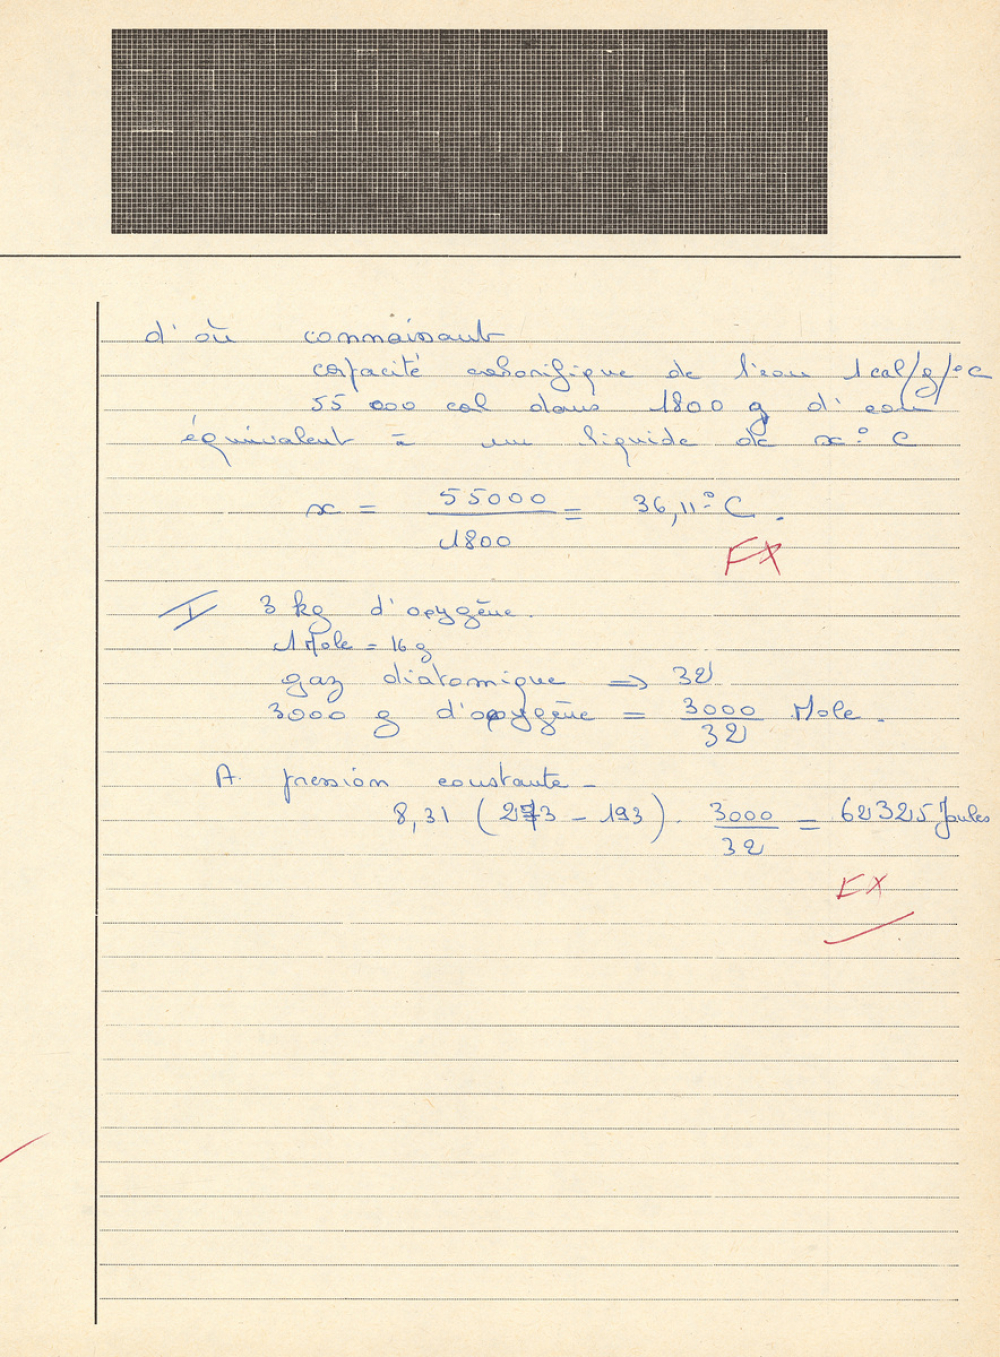 d'où connaissant
capacité calorifique de l'eau 1 cal/g/°C
55 000 cal dans 1800 g d'eau
équivalent à un liquide de x°C
x = 55000 / 1800 = 36,11°C.
FX
I 3 kg d'oxygène.
1 Mole = 16 g
gaz diatomique => 32
3000 g d'oxygène = 3000 / 32 Mole.
A pression constante -
8,31 (273 - 193). 3000 / 32 = 62325 Joules
EX